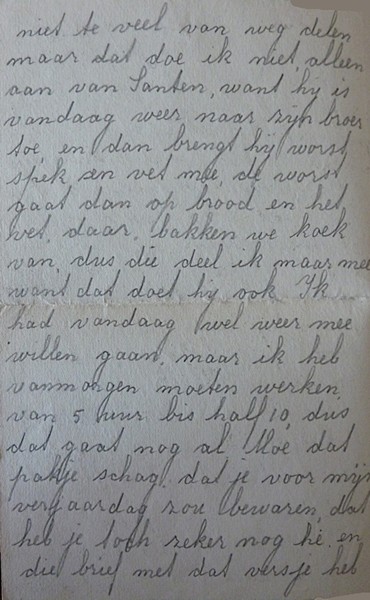 niet te veel van weg delen
maar dat doe ik niet, alleen
aan van Santen, want hij is
vandaag weer naar zijn broer
toe, en dan brengt hij worst,
spek en vet mee, de worst
gaat dan op brood en het
vet, daar, bakken we koek
van, dus die deel ik maar mee
want dat doet hij ook. Ik
had vandaag wel weer mee
willen gaan, maar ik heb
vanmorgen moeten werken,
van 5 uur bis half 10, dus
dat gaat nog al. Moe dat
pakje schag. dat je voor mijn
verjaardag zou bewaren, dat
heb je toch zeker nog hè. en
die brief met dat versje heb